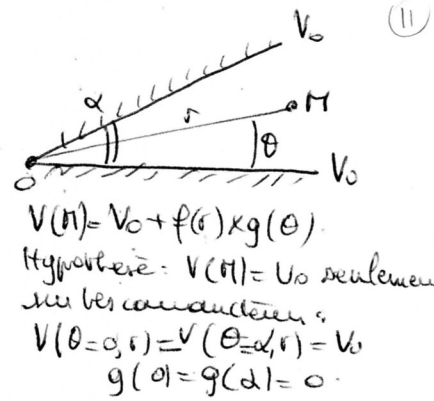 11
V₀
α
r
M
θ
O
V₀
V(M) = V₀ + f(r) × g(θ).
Hypothèse: V(M) = V₀ seulement
sur les conducteurs.
V(θ=0, r) = V(θ=α, r) = V₀
g(0) = g(α) = 0.